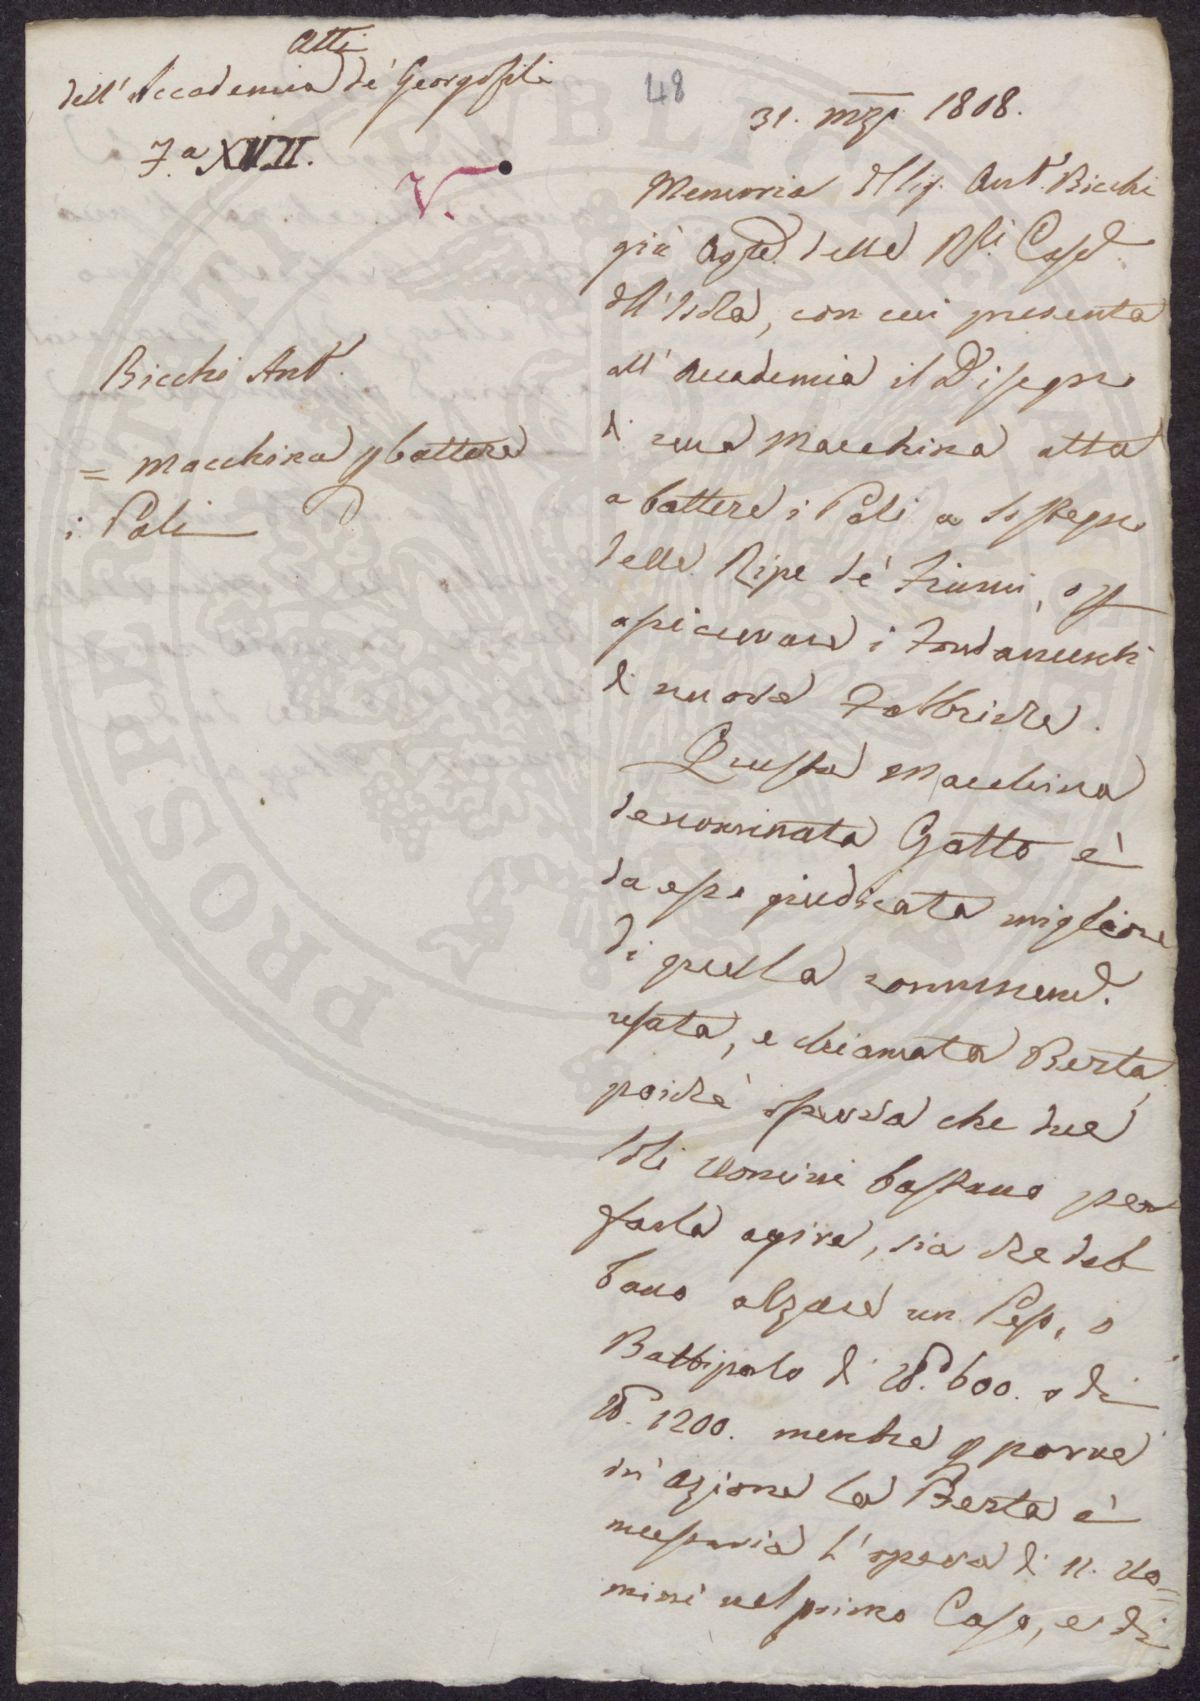 Atti
dell'Accademia de' Georgofili
7.a XVII.
V.
48
31. mzo 1808.
Bicchi Ant.
= Macchina p battere
i Pali
Memoria del Sig. Ant. Bicchi
già Agte. delle Rli. Possd.
dell'Isola, con cui presenta
all'Accademia il Disegno
di una Macchina atta
a battere i Pali a sostegno
delle Ripe de' Fiumi, o p
assicurare i Fondamenti
di nuove Fabbriche.
Questa Macchina
denominata Gatto è
da esso giudicata migliore
di quella comunem.
usata, e chiamata Berta,
poichè osserva che due
soli uomini bastano per
farla agire, sia che deb
bano alzare un Peso, o
Battipalo di lb. 600. o di
lb. 1200. mentre p porre
in azione la Berta è
necessaria l'opera di 11. Uo=
mini nel primo Caso, e di
PROSPERITATI PUBLICAE AUGENDAE